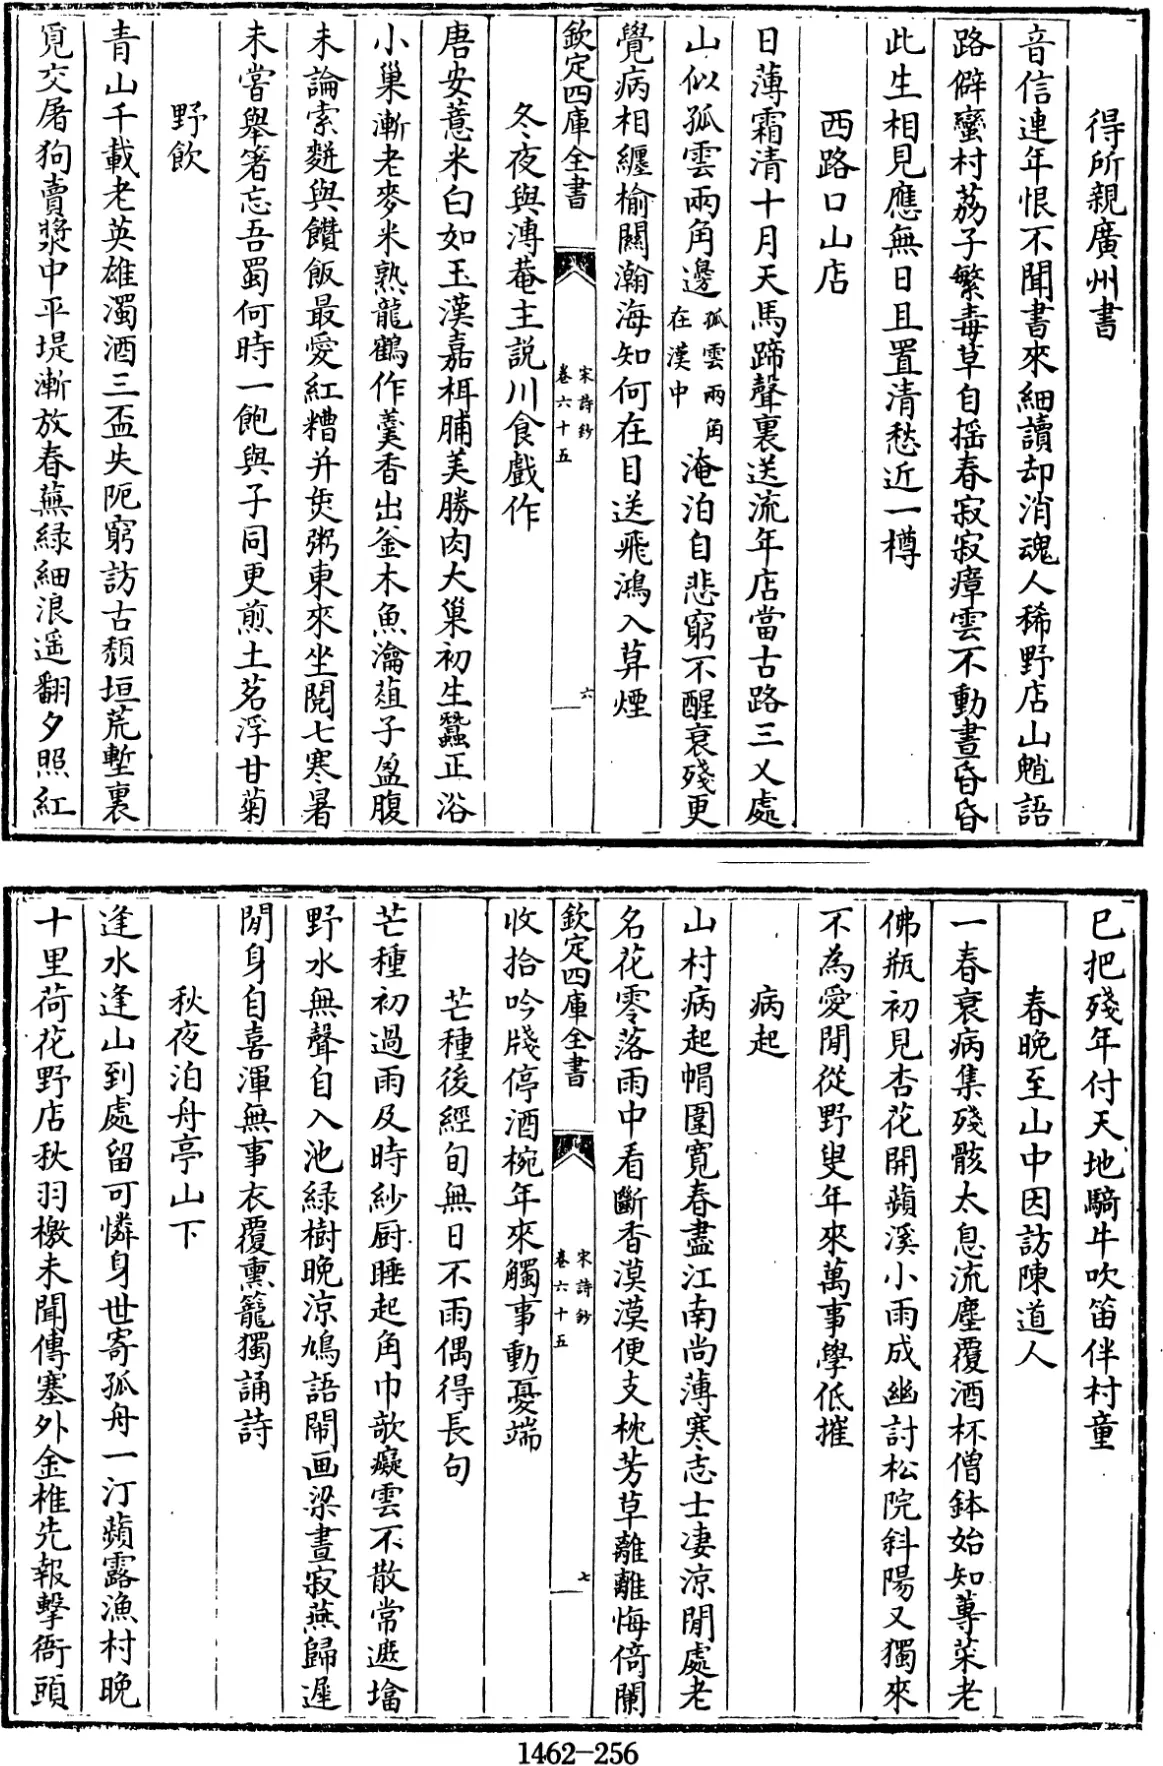 得所親廣州書
音信連年恨不聞書來細讀却消魂人稀野店山魈語
路僻蠻村荔子繁毒草自揺春寂寂瘴雲不動晝昏昏
此生相見應無日且置清愁近一樽
西路口山店
日薄霜清十月天馬蹄聲裏送流年店當古路三乂處
山似孤雲兩角邊孤雲兩角在漢中淹泊自悲窮不醒衰殘更
覺病相纏榆關瀚海知何在目送飛鴻入莫煙
欽定四庫全書
宋詩鈔
卷六十五
六
冬夜與溥菴主説川食戲作
唐安薏米白如玉漢嘉栮脯美勝肉大巢初生蠶正浴
小巢漸老麥米熟龍鶴作羹香出釜木魚瀹葅子盈腹
未論索麫與饡飯最愛紅糟并炰粥東來坐閲七寒暑
未嘗舉箸忘吾蜀何時一飽與子同更煎土茗浮甘菊
野飲
青山千載老英雄濁酒三盃失阨窮訪古頽垣荒塹裏
覓交屠狗賣漿中平堤漸放春蕪緑細浪遥翻夕照紅
已把殘年付天地騎牛吹笛伴村童
春晚至山中因訪陳道人
一春衰病集殘骸太息流塵覆酒杯僧鉢始知蓴菜老
佛瓶初見杏花開蘋溪小雨成幽討松院斜陽又獨來
不為愛閒從野叟年來萬事學低摧
病起
山村病起㡌圍寛春盡江南尚薄寒志士凄涼閒處老
名花零落雨中看斷香漠漠便支枕芳草離離悔倚闌
欽定四庫全書
宋詩鈔
卷六十五
七
收拾吟牋停酒椀年來觸事動憂端
芒種後經旬無日不雨偶得長句
芒種初過雨及時紗厨睡起角巾欹癡雲不散常遮塔
野水無聲自入池緑樹晚涼鳩語鬧画梁晝寂燕歸遲
閒身自喜渾無事衣覆熏籠獨誦詩
秋夜泊舟亭山下
逢水逢山到處留可憐身世寄孤舟一汀蘋露漁村晚
十里荷花野店秋羽檄未聞傳塞外金椎先報擊衙頭
1462-256